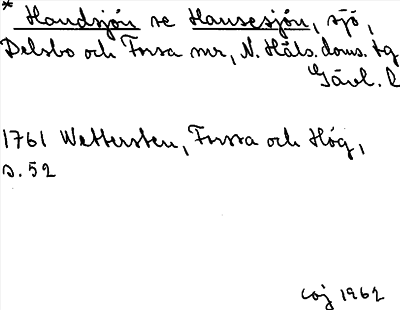 * Handsjön se Hansesjön, sjö,
Delsbo och Forsa snr, N. Häls. doms. tg
Gävl. l
1761 Wettersten, Forssa och Hög,
s. 52
coj 1962